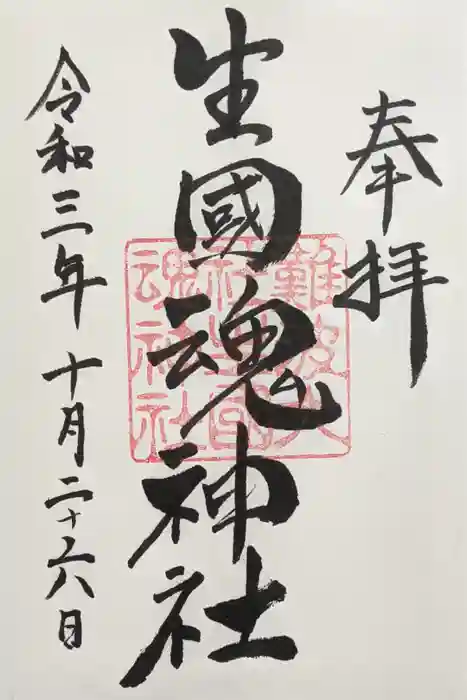 奉拝
生國魂神社
難波大社生國魂神社
令和三年十月二十六日